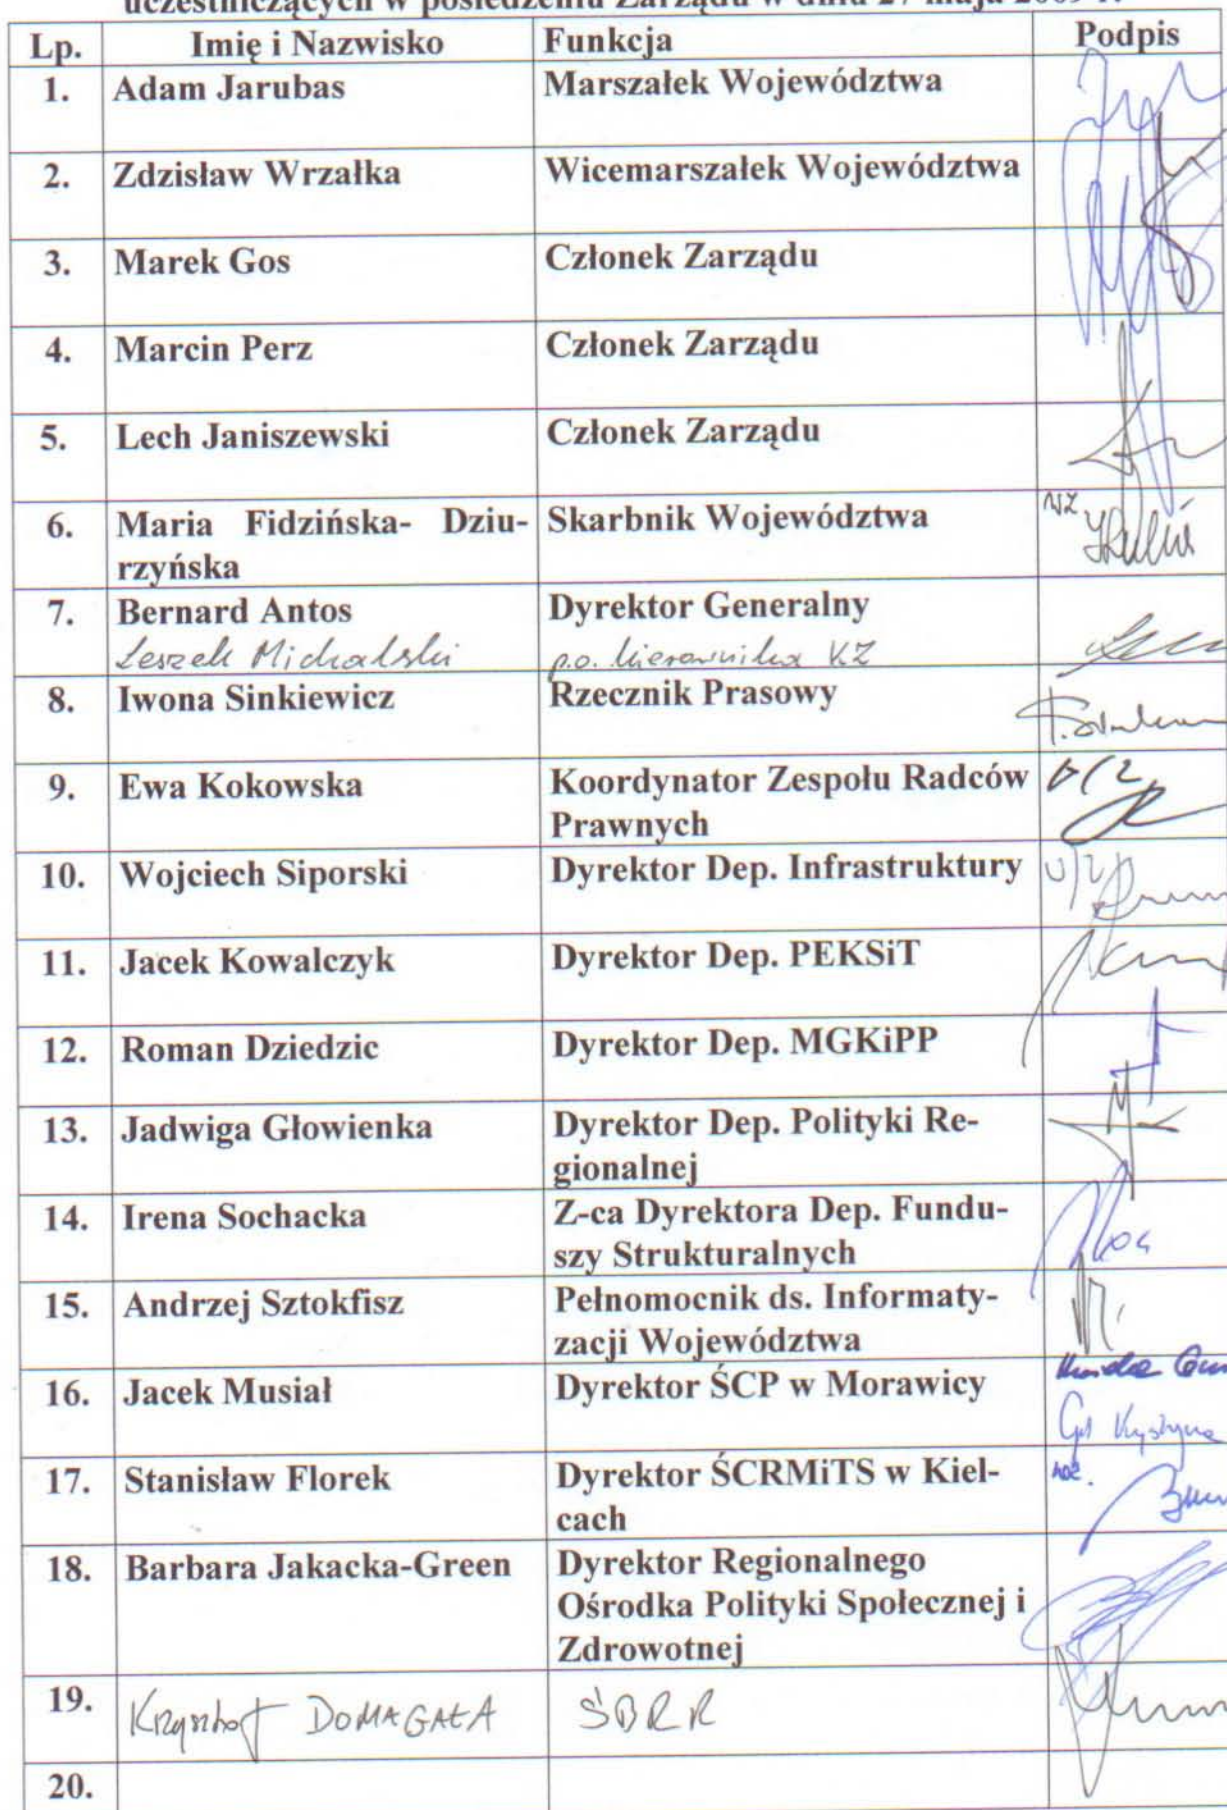 uczestniczących w posiedzeniu Zarządu w dniu 27 maja 2009 r.
Lp. Imię i Nazwisko Funkcja Podpis
1. Adam Jarubas Marszałek Województwa
2. Zdzisław Wrzałka Wicemarszałek Województwa
3. Marek Gos Członek Zarządu
4. Marcin Perz Członek Zarządu
5. Lech Janiszewski Członek Zarządu
6. Maria Fidzińska- Dziu- Skarbnik Województwa
rzyńska
7. Bernard Antos Dyrektor Generalny
Leszek Michalski p.o. kierownika KZ
8. Iwona Sinkiewicz Rzecznik Prasowy
9. Ewa Kokowska Koordynator Zespołu Radców
Prawnych
10. Wojciech Siporski Dyrektor Dep. Infrastruktury
11. Jacek Kowalczyk Dyrektor Dep. PEKSiT
12. Roman Dziedzic Dyrektor Dep. MGKiPP
13. Jadwiga Głowienka Dyrektor Dep. Polityki Re-
gionalnej
14. Irena Sochacka Z-ca Dyrektora Dep. Fundu-
szy Strukturalnych
15. Andrzej Sztokfisz Pełnomocnik ds. Informaty-
zacji Województwa
16. Jacek Musiał Dyrektor ŚCP w Morawicy
17. Stanisław Florek Dyrektor ŚCRMiTS w Kiel-
cach
18. Barbara Jakacka-Green Dyrektor Regionalnego
Ośrodka Polityki Społecznej i
Zdrowotnej
19. Krzysztof DOMAGAŁA ŚBRR
20.